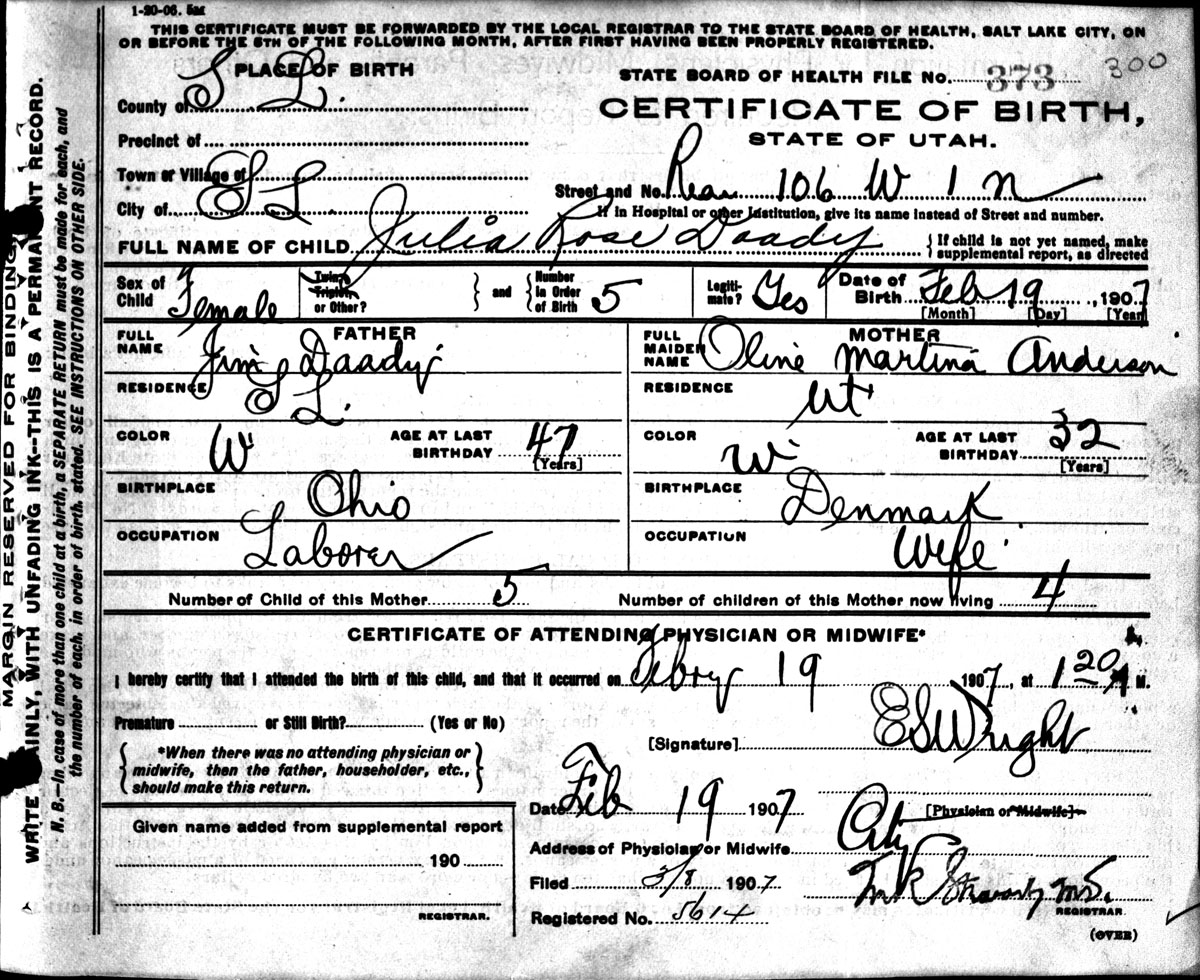 1-20-06. 5M
THIS CERTIFICATE MUST BE FORWARDED BY THE LOCAL REGISTRAR TO THE STATE BOARD OF HEALTH, SALT LAKE CITY, ON
OR BEFORE THE 5TH OF THE FOLLOWING MONTH, AFTER FIRST HAVING BEEN PROPERLY REGISTERED.
PLACE OF BIRTH
STATE BOARD OF HEALTH FILE NO. 373 300
County of S L.
CERTIFICATE OF BIRTH,
STATE OF UTAH.
Precinct of
Town or Village of
Street and No. Rear 106 W 1 N
City of S L.
If in Hospital or other Institution, give its name instead of Street and number.
FULL NAME OF CHILD Julia Rose Doady { If child is not yet named, make supplemental report, as directed
Sex of Child Female
Twin, Triplet, or Other? } and { Number in Order of Birth 5
Legitimate? Yes
Date of Birth Feb 19, 1907
[Month] [Day] [Year]
FATHER
FULL NAME Jim Doady
RESIDENCE S L.
COLOR W AGE AT LAST BIRTHDAY 47
[Years]
BIRTHPLACE Ohio
OCCUPATION Laborer
MOTHER
FULL MAIDEN NAME Oline Martina Anderson
RESIDENCE Ut
COLOR W AGE AT LAST BIRTHDAY 32
[Years]
BIRTHPLACE Denmark
OCCUPATION Wife
Number of Child of this Mother 5 Number of children of this Mother now living 4
CERTIFICATE OF ATTENDING PHYSICIAN OR MIDWIFE*
I hereby certify that I attended the birth of this child, and that it occurred on Febry 19 1907, at 1 20 A M.
Premature or Still Birth? (Yes or No)
[Signature] E S Wright
*When there was no attending physician or
midwife, then the father, householder, etc.,
should make this return.
Date Feb 19 1907
[Physician or Midwife]
Given name added from supplemental report
190
REGISTRAR.
Address of Physician or Midwife City
Filed 3/8 1907
REGISTRAR.
Registered No. 5614
(OVER)
MARGIN RESERVED FOR BINDING
WRITE PLAINLY, WITH UNFADING INK--THIS IS A PERMANENT RECORD.
N. B.—In case of more than one child at a birth, a SEPARATE RETURN must be made for each, and
the number of each, in order of birth, stated. SEE INSTRUCTIONS ON OTHER SIDE.